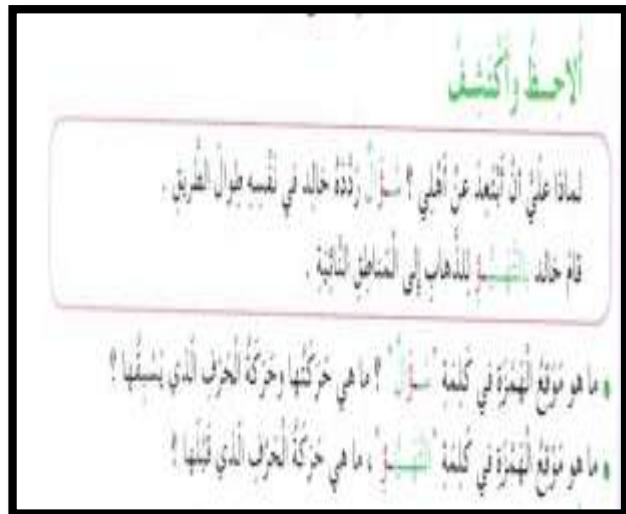 أُلاحِظُ وأَكْتَشِفُ
لماذا عَلَيَّ أَنْ أَبْتَعِدَ عَنْ أَهْلِي ؟ سُؤَالٌ رَدَّدَهُ خالِد في نَفْسِهِ طِوالَ الطَّريقِ .
قامَ خالد بِالتَّهَيُّؤِ لِلذَّهابِ إلى الْمَناطِقِ النَّائِيَةِ .
• ما هو مَوْقِعُ الْهَمْزَةِ في كَلِمَةِ "سُؤَالٌ" ؟ ما هي حَرَكَتُها وحَرَكَةُ الْحَرْفِ الَّذي يَسْبِقُها ؟
• ما هو مَوْقِعُ الْهَمْزَةِ في كَلِمَةِ "التَّهَيُّؤِ"، ما هي حَرَكَةُ الْحَرْفِ الَّذي قَبْلَها ؟